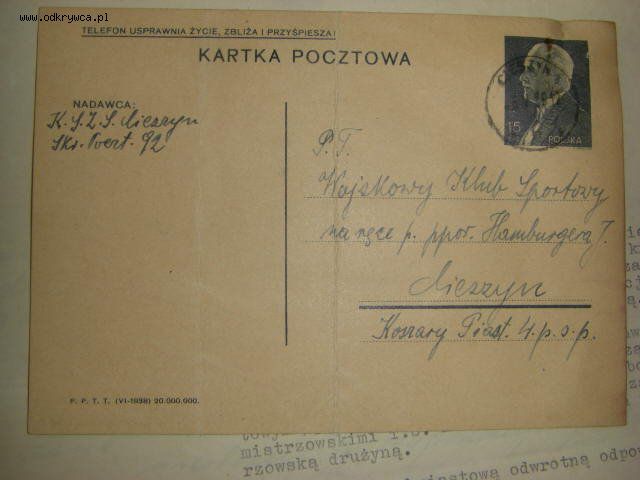 www.odkrywca.pl
TELEFON USPRAWNIA ŻYCIE, ZBLIŻA I PRZYŚPIESZA!
KARTKA POCZTOWA
NADAWCA:
K.S.Z.S. Cieszyn
Skr. Poczt. 92
15
POLSKA
P. T.
Wojskowy Klub Sportowy
na ręce p. ppor. Hamburgera J.
Cieszyn
Koszary Piast. 4. p. s. p.
P. P. T. T. (VI-1938) 20.000.000.
mistrzowskimi
rzowską drużyną.
odwrotną